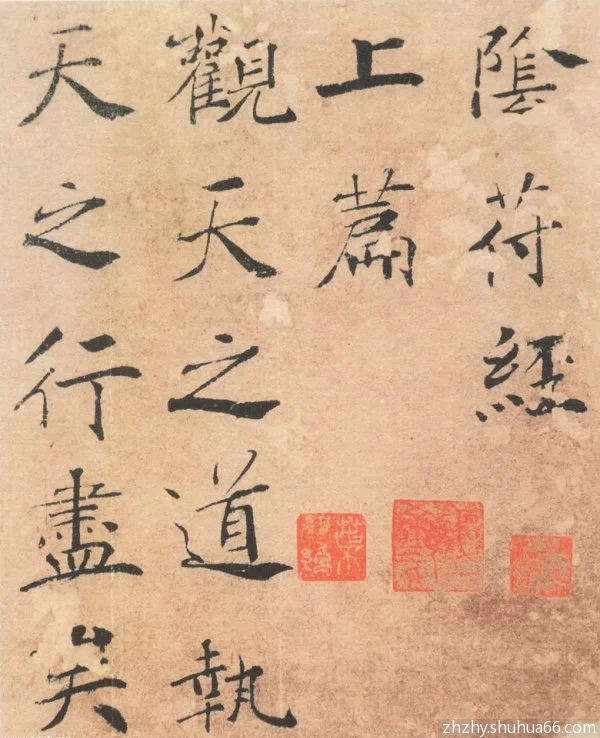 陰符經
上篇
觀天之道執
天之行盡矣
zhzhy.shuhua66.com